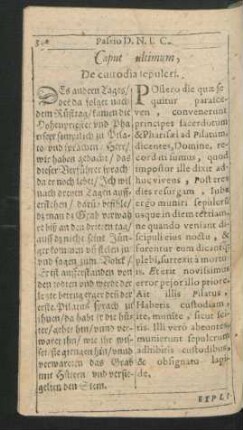 Passio D. N. I. C.
Caput ultimum,
De custodia sepulcri.
DEs andern Tages/
der da folget nach
dem Rüsttag/ kamen die
Hohenpriester und Pha-
riseer sämptlich zu Pila-
to/ und sprachen: Herr/
wir haben gedacht/ das
dieser Verführer sprach/
da er noch lebet/ Ich wil
nach dreien Tagen auff-
erstehen/ darumb befihl/
dz man dz Grab verwah-
re biß an den dritten tag/
auff dz nicht seine Jün-
ger kommen
und sagen zum Volck/
Er ist aufferstanden von
den todten/ und werde der
letzte betrug erger den der
erste. Pilatus sprach zu
ihnen/ da habt ir die hü-
ter/ gehet hin/ und ver-
waret ihn/ wie ihr wis-
set/ sie giengen hin/ und
verwareten das Grab
mit Hütern/ und versie-
gelten den Stein.
POstero die quæ se-
quitur parasce-
ven, convenerunt
principes sacerdotum
& Pharisæi ad Pilatum,
dicentes, Domine, re-
cordati sumus, quod
impostor ille dixit ad-
huc vivens, Post tres
dies resurgam, Jube
ergo muniri sepulcrum
usque in diem tertium,
ne quando veniant di-
scipuli eius noctu, &
furentur eum dicantq;
plebi, surrexit à mortu-
is. Et erit novissimus
error pejor illo priore.
Ait illis Pilatus,
Habetis custodiam,
ite, munite, sicut sci-
tis. Illi verò abeuntes
munierunt sepulcrum
adhibitis custodibus,
& obsignato lapi-
de.
EXPLI